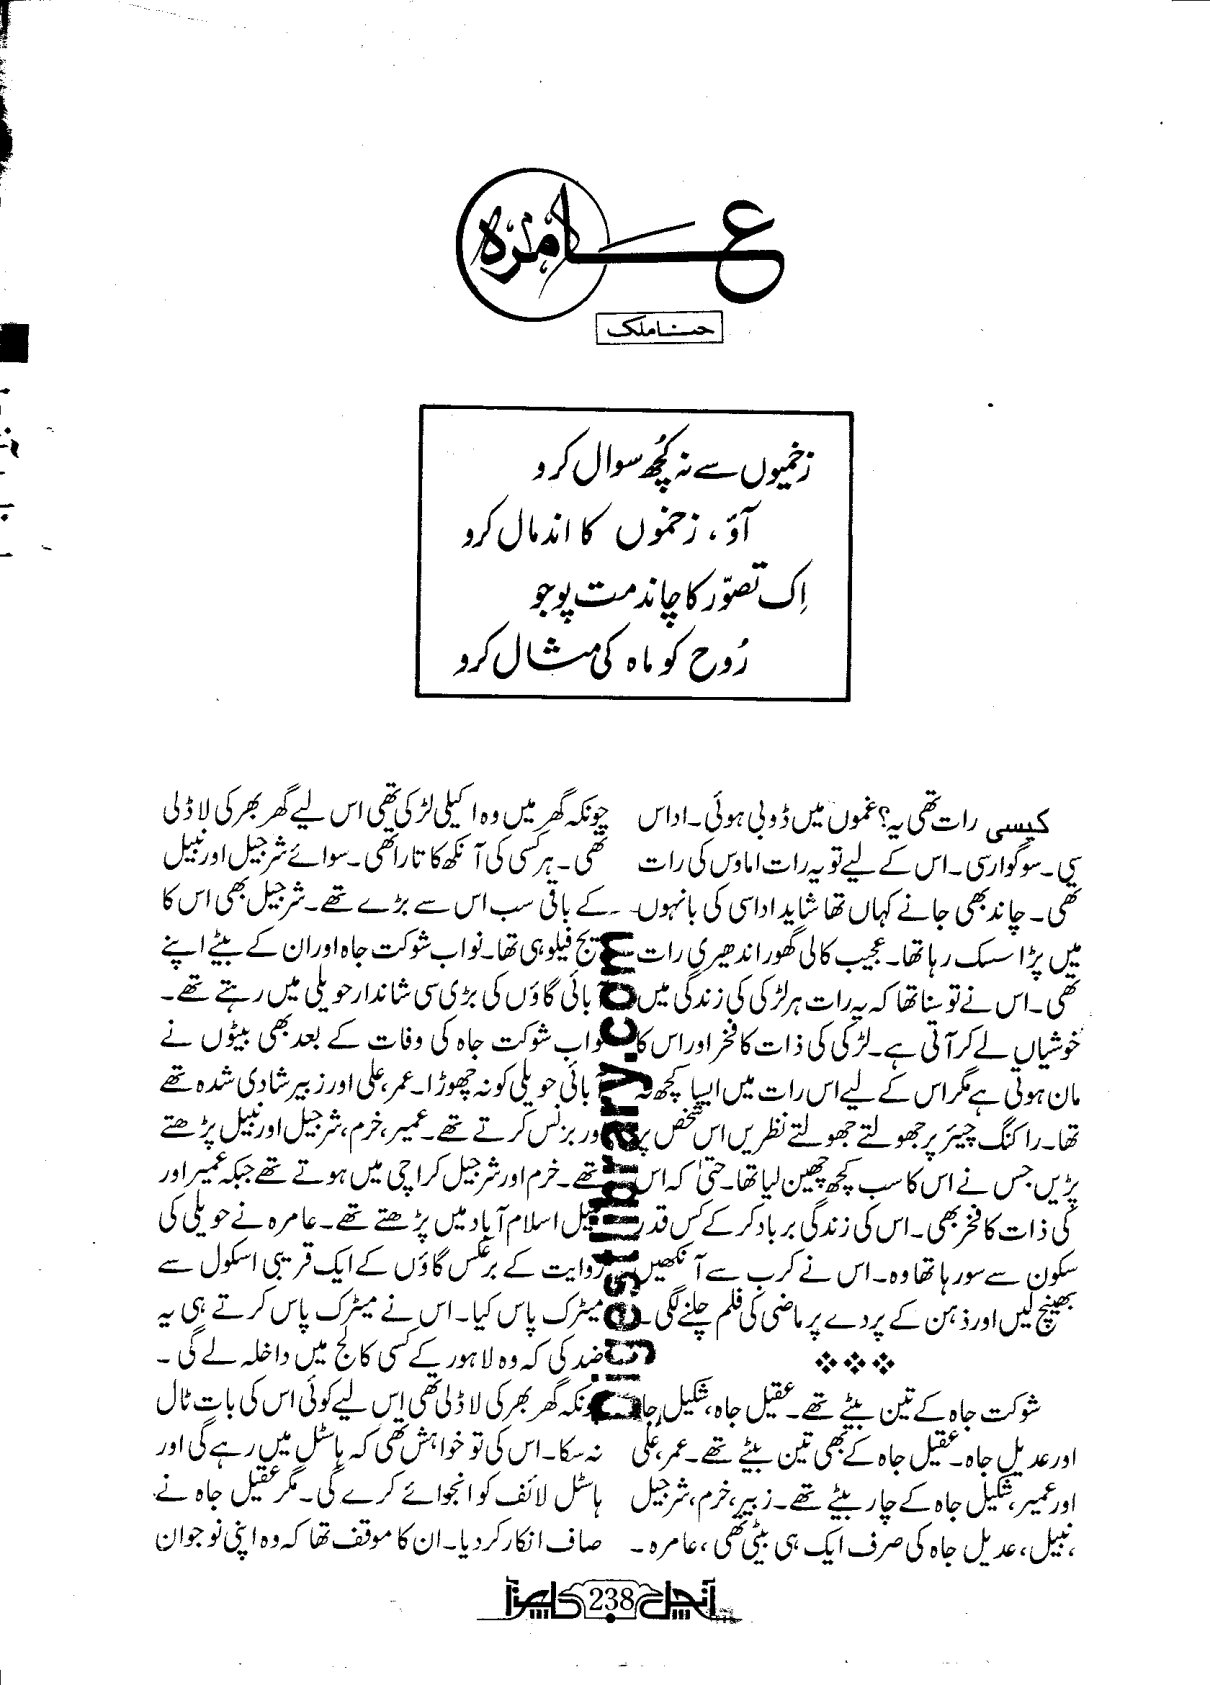 عامرہ
حنا ملک
زخمیوں سے نہ کُچھ سوال کرو
آؤ، زخموں کا اندمال کرو
اِک تصوّر کا چاند مت پوجو
رُوح کو ماہ کی مثال کرو
کیسی رات تھی یہ؟ غموں میں ڈوبی ہوئی۔ اداس
سی۔ سوگوار سی۔ اس کے لیے تو یہ رات اماوس کی رات
تھی۔ چاند بھی جانے کہاں تھا شاید اداسی کی بانہوں
میں پڑا سسک رہا تھا۔ عجیب کالی گھور اندھیری رات
تھی۔ اس نے تو سنا تھا کہ یہ رات ہر لڑکی کی زندگی میں
خوشیاں لے کر آتی ہے۔ لڑکی کی ذات کا فخر اور اس کا
مان ہوتی ہے مگر اس کے لیے اس رات میں ایسا کچھ نہ
تھا۔ راکنگ چیئر پر جھولتے جھولتے نظریں اس شخص پر
پڑیں جس نے اس کا سب کچھ چھین لیا تھا۔ حتیٰ کہ اس
کی ذات کا فخر بھی۔ اس کی زندگی برباد کر کے کس قدر
سکون سے سو رہا تھا وہ۔ اس نے کرب سے آنکھیں
بھینچ لیں اور ذہن کے پردے پر ماضی کی فلم چلنے لگی۔
شوکت جاہ کے تین بیٹے تھے۔ عقیل جاہ، شکیل جاہ
اور عدیل جاہ۔ عقیل جاہ کے بھی تین بیٹے تھے۔ عمر، علی
اور عمیر، شکیل جاہ کے چار بیٹے تھے۔ زبیر، خرم، شرجیل
، نبیل، عدیل جاہ کی صرف ایک ہی بیٹی تھی، عامرہ۔
چونکہ گھر میں وہ اکیلی لڑکی تھی اس لیے گھر بھر کی لاڈلی
تھی۔ ہر کسی کی آنکھ کا تارا تھی۔ سوائے شرجیل اور نبیل
کے باقی سب اس سے بڑے تھے۔ شرجیل بھی اس کا
ایج فیلو ہی تھا۔ نواب شوکت جاہ اور ان کے بیٹے اپنے
آبائی گاؤں کی بڑی سی شاندار حویلی میں رہتے تھے۔
نواب شوکت جاہ کی وفات کے بعد بھی بیٹوں نے
آبائی حویلی کو نہ چھوڑا۔ عمر، علی اور زبیر شادی شدہ تھے
اور بزنس کرتے تھے۔ عمیر، خرم، شرجیل اور نبیل پڑھتے
تھے۔ خرم اور شرجیل کراچی میں ہوتے تھے جبکہ عمیر اور
نبیل اسلام آباد میں پڑھتے تھے۔ عامرہ نے حویلی کی
روایت کے برعکس گاؤں کے ایک قریبی اسکول سے
میٹرک پاس کیا۔ اس نے میٹرک پاس کرتے ہی یہ
ضد کی کہ وہ لاہور کے کسی کالج میں داخلہ لے گی۔
چونکہ گھر بھر کی لاڈلی تھی اِس لیے کوئی اس کی بات ٹال
نہ سکا۔ اس کی تو خواہش تھی کہ ہاسٹل میں رہے گی اور
ہاسٹل لائف کو انجوائے کرے گی۔ مگر عقیل جاہ نے
صاف انکار کر دیا۔ ان کا موقف تھا کہ وہ اپنی نوجوان
Digestlibrary.com
آنچل 238